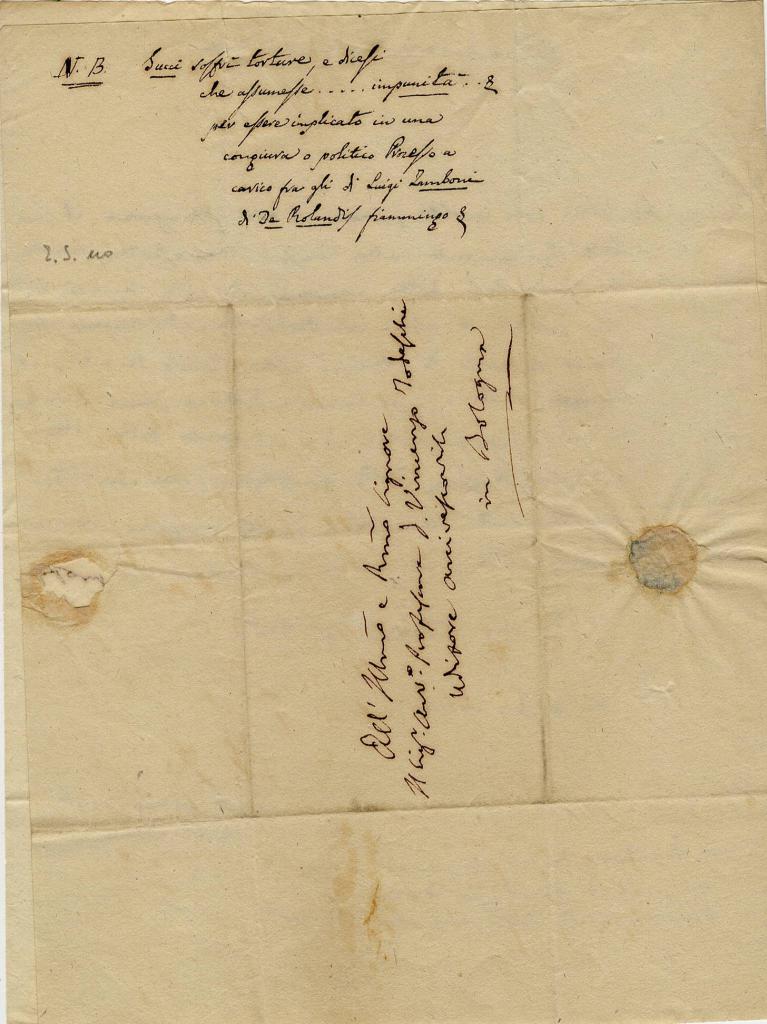 N. B. Succi soffrì torture, e dicesi
che assumesse ..... impunità ..
per essere implicato in una
congiura o politico Processo a
carico fra gli di Luigi Zamboni
di De Rolandis fiammingo
All' Illmo e Rmo Signore
Il Sigr. Avvo. Professore D. Vincenzo Todeschi
Uditore Arcivescovile
in Bologna